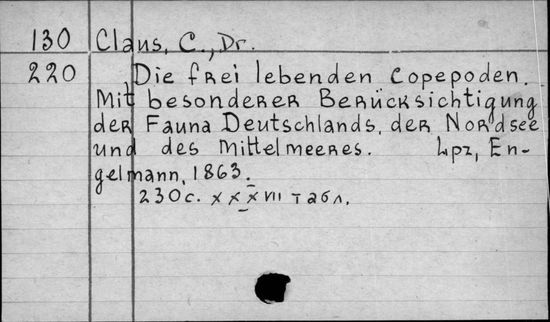 130 Claus, C., Dr.
220 Die frei lebenden Copepoden.
Mit besonderer Berücksichtigung
der Fauna Deutschlands, der Nordsee
und des Mittelmeeres. Lpz, En-
gelmann, 1863.
230 с. XXXVII табл.